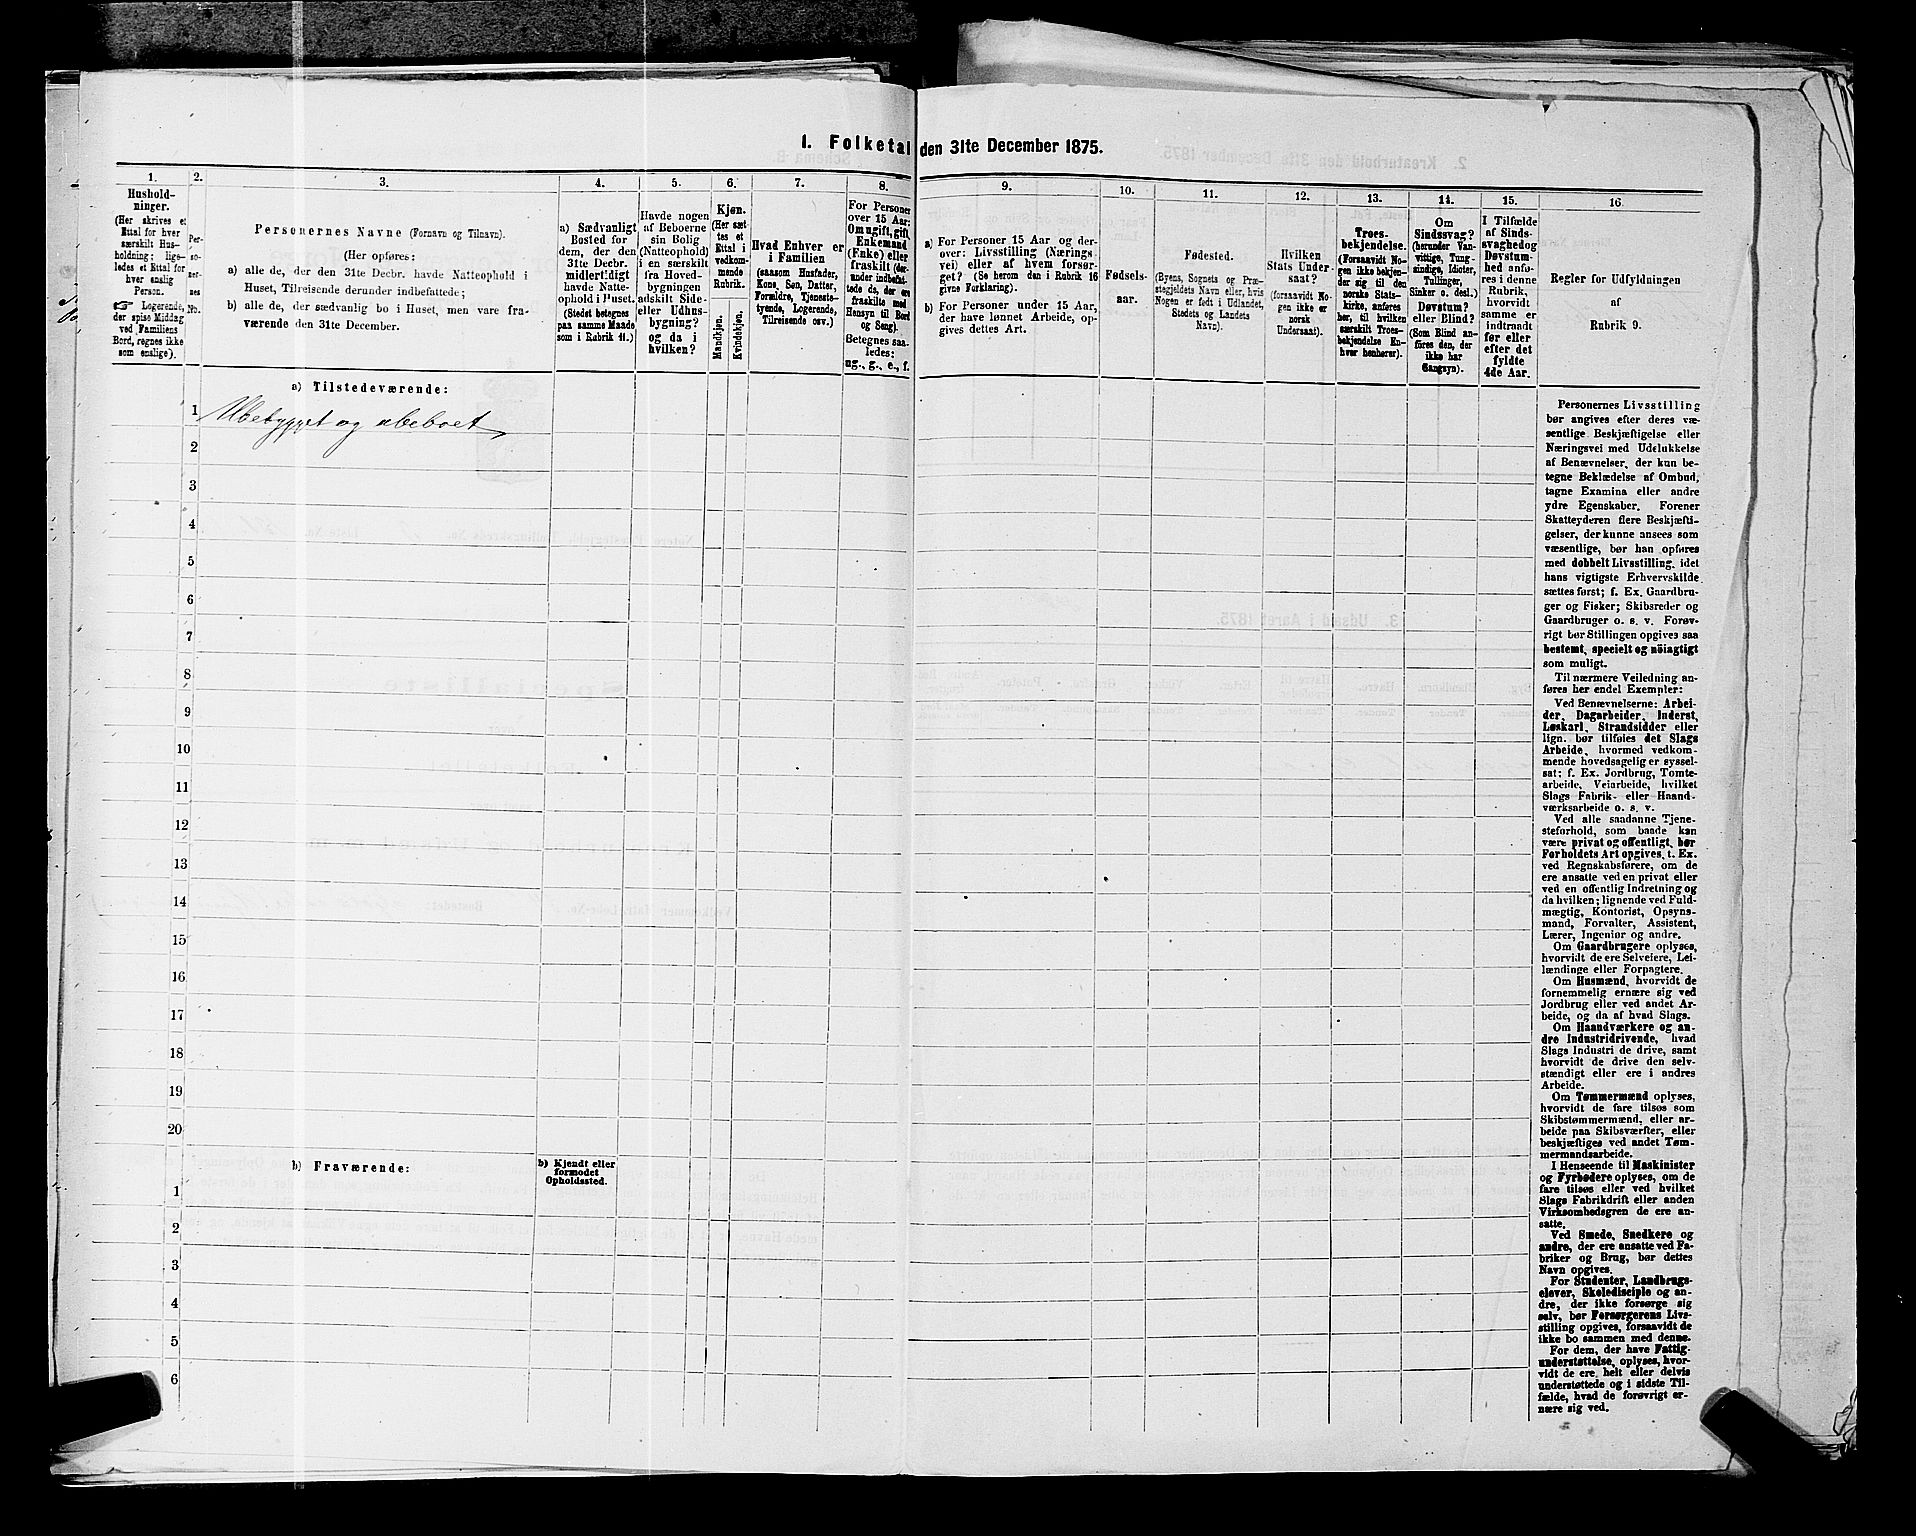 1. Folketal den 31te December 1875.
1.
Hushold-
ninger.
(Her skrives et
Ettal for hver
særskilt Hus-
holdning; lige-
ledes et Ettal for
hver enslig
Person.
☞ Logerende,
der spise Middag
ved Familiens
Bord, regnes ikke
som enslige).
2.
Per-
so-
ner-
nes
No.
3.
Personernes Navne (Fornavn og Tilnavn).
(Her opføres:
a) alle de, der den 31te Decbr. havde Natteophold i
Huset, Tilreisende derunder indbefattede;
b) alle de, der sædvanlig bo i Huset, men vare fra-
værende den 31te December.
4.
a) Sædvanligt
Bosted for
dem, der den
31te Decbr.
midlertidigt
havde Natte-
ophold i Huset.
(Stedet betegnes
paa samme Maade
som i Rubrik 11.)
5.
Havde nogen
af Beboerne
sin Bolig
(Natteophold)
i en særskilt
fra Hoved-
bygningen
adskilt Side-
eller Udhus-
bygning?
og da i
hvilken?
6.
Kjøn.
(Her sæt-
tes et
Ettal i
vedkom-
mende
Rubrik.
Mandkjøn.
Kvindekjøn.
7.
Hvad Enhver er
i Familien
(saasom Husfader,
Kone, Søn, Datter,
Forældre, Tjeneste-
tyende, Logerende,
Tilreisende osv.)
8.
For Personer
over 15 Aar:
Om ugift, gift,
Enkemand
(Enke) eller
fraskilt (der-
under indbefat-
tede de, der ere
fraskilte med
Hensyn til Bord
og Seng).
Betegnes saa-
ledes:
ug., g., e., f.
9.
a) For Personer 15 Aar og der-
over: Livsstilling (Nærings-
vei) eller af hvem forsør-
get? (Se herom den i Rubrik 16
givne Forklaring).
b) For Personer under 15 Aar,
der have lønnet Arbeide, op-
gives dettes Art.
10.
Fødsels-
aar.
11.
Fødested.
(Byens, Sognets og Præ-
stegjeldets Navn eller, hvis
Nogen er født i Udlandet,
Stedets og Landets
Navn).
12.
Hvilken
Stats Under-
saat?
(forsaavidt No-
gen ikke er
norsk
Undersaat).
13.
Troes-
bekjendelse.
(Forsaavidt No-
gen ikke bekjen-
der sig til den
norske Stats-
kirke, anføres
her, til hvilken
særskilt Troes-
bekjendelse En-
hver henhører).
14.
Om
Sindssvag?
(herunder Van-
vittige, Tung-
sindige, Idioter,
Tullinger,
Sinker o. desl.)
Døvstum?
eller Blind?
(Som Blind an-
føres den, der
ikke har
Gangsyn).
15.
I Tilfælde
af Sinds-
svaghed og
Døvstum-
hed anfø-
res i denne
Rubrik,
hvorvidt
samme er
indtraadt
før eller
efter det
fyldte
4de Aar.
16
Regler for Udfyldningen
af
Rubrik 9.
a) Tilstedeværende:
1 Ubebygget og ubeboet
2
3
4
5
6
7
8
9
10
11
12
13
14
15
16
17
18
19
20
b) Fraværende:
b) Kjendt eller
formodet
Opholdssted.
1
2
3
4
5
6
Personernes Livsstilling
bør angives efter deres væ-
sentlige Beskjæftigelse eller
Næringsvei med Udelukkelse
af Benævnelser, der kun be-
tegne Beklædelse af Ombud,
tagne Examina eller andre
ydre Egenskaber. Forener
Skatteyderen flere Beskjæfti-
gelser, der kunne ansees som
væsentlige, bør han opføres
med dobbelt Livsstilling, idet
hans vigtigste Erhvervskilde
sættes først; f. Ex. Gaardbru-
ger og Fisker; Skibsreder og
Gaardbruger o. s. v. Forøv-
rigt bør Stillingen opgives saa
bestemt, specielt og nöiagtigt
som muligt.
Til nærmere Veiledning an-
føres her endel Exempler:
Ved Benævnelserne: Arbei-
der, Dagarbeider, Inderst,
Løskarl, Strandsidder eller
lign. bør tilføies det Slags
Arbeide, hvormed vedkom-
mende hovedsagelig er syssel-
sat; f. Ex. Jordbrug, Tomte-
arbeide, Veiarbeide, hvilket
Slags Fabrik- eller Haand-
værksarbeide o. s. v.
Ved alle saadanne Tjene-
steforhold, som baade kan
være privat og offentligt, bør
Forholdets Art opgives, t. Ex.
ved Regnskabsførere, om de
ere ansatte ved en privat eller
ved en offentlig Indretning og
da hvilken; lignende ved Fuld-
mægtig, Kontorist, Opsyns-
mand, Forvalter, Assistent,
Lærer, Ingeniør og andre.
Om Gaardbrugere oplyses,
hvorvidt de ere Selveiere, Lei-
lændinge eller Forpagtere.
Om Husmænd, hvorvidt de
fornemmelig ernære sig ved
Jordbrug eller ved andet Ar-
beide, og da af hvad Slags.
Om Haandværkere og an-
dre Industridrivende, hvad
Slags Industri de drive, samt
hvorvidt de drive den selv-
stændigt eller ere i andres
Arbeide.
Om Tømmermænd oplyses,
hvorvidt de fare tilsøs som
Skibstømmermænd, eller ar-
beide paa Skibsværfter, eller
beskjæftiges ved andet Tøm-
mermandsarbeide.
I Henseende til Maskinister
og Fyrbødere oplyses, om de
fare tilsøs eller ved hvilket
Slags Fabrikdrift eller anden
Virksomhedsgren de ere an-
satte.
Ved Smede, Snedkere og
andre, der ere ansatte ved Fa-
briker og Brug, bør dettes
Navn opgives.
For Studenter, Landbrugs-
elever, Skoledisciple og an-
dre, der ikke forsørge sig
selv, bør Forsørgerens Livs-
stilling opgives, forsaavidt de
ikke bo sammen med denne.
For dem, der have Fattig-
understøttelse, oplyses, hvor-
vidt de ere helt eller delvis
understøttede og i sidste Til-
fælde, hvad de forøvrigt er-
nære sig ved.